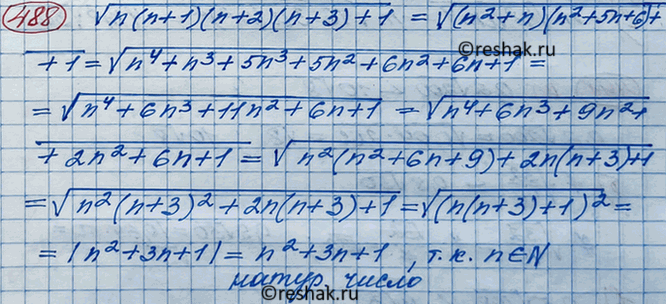 488 √n(n+1)(n+2)(n+3)+1 = √(n²+n)(n²+5n+6)+
+1 = √n⁴+n³+5n³+5n²+6n²+6n+1 =
= √n⁴+6n³+11n²+6n+1 = √n⁴+6n³+9n²+
+2n²+6n+1 = √n²(n²+6n+9)+2n(n+3)+1
= √n²(n+3)²+2n(n+3)+1 = √(n(n+3)+1)² =
= |n²+3n+1| = n²+3n+1, т.к. n∈N
натур. число
©reshak.ru
©reshak.ru